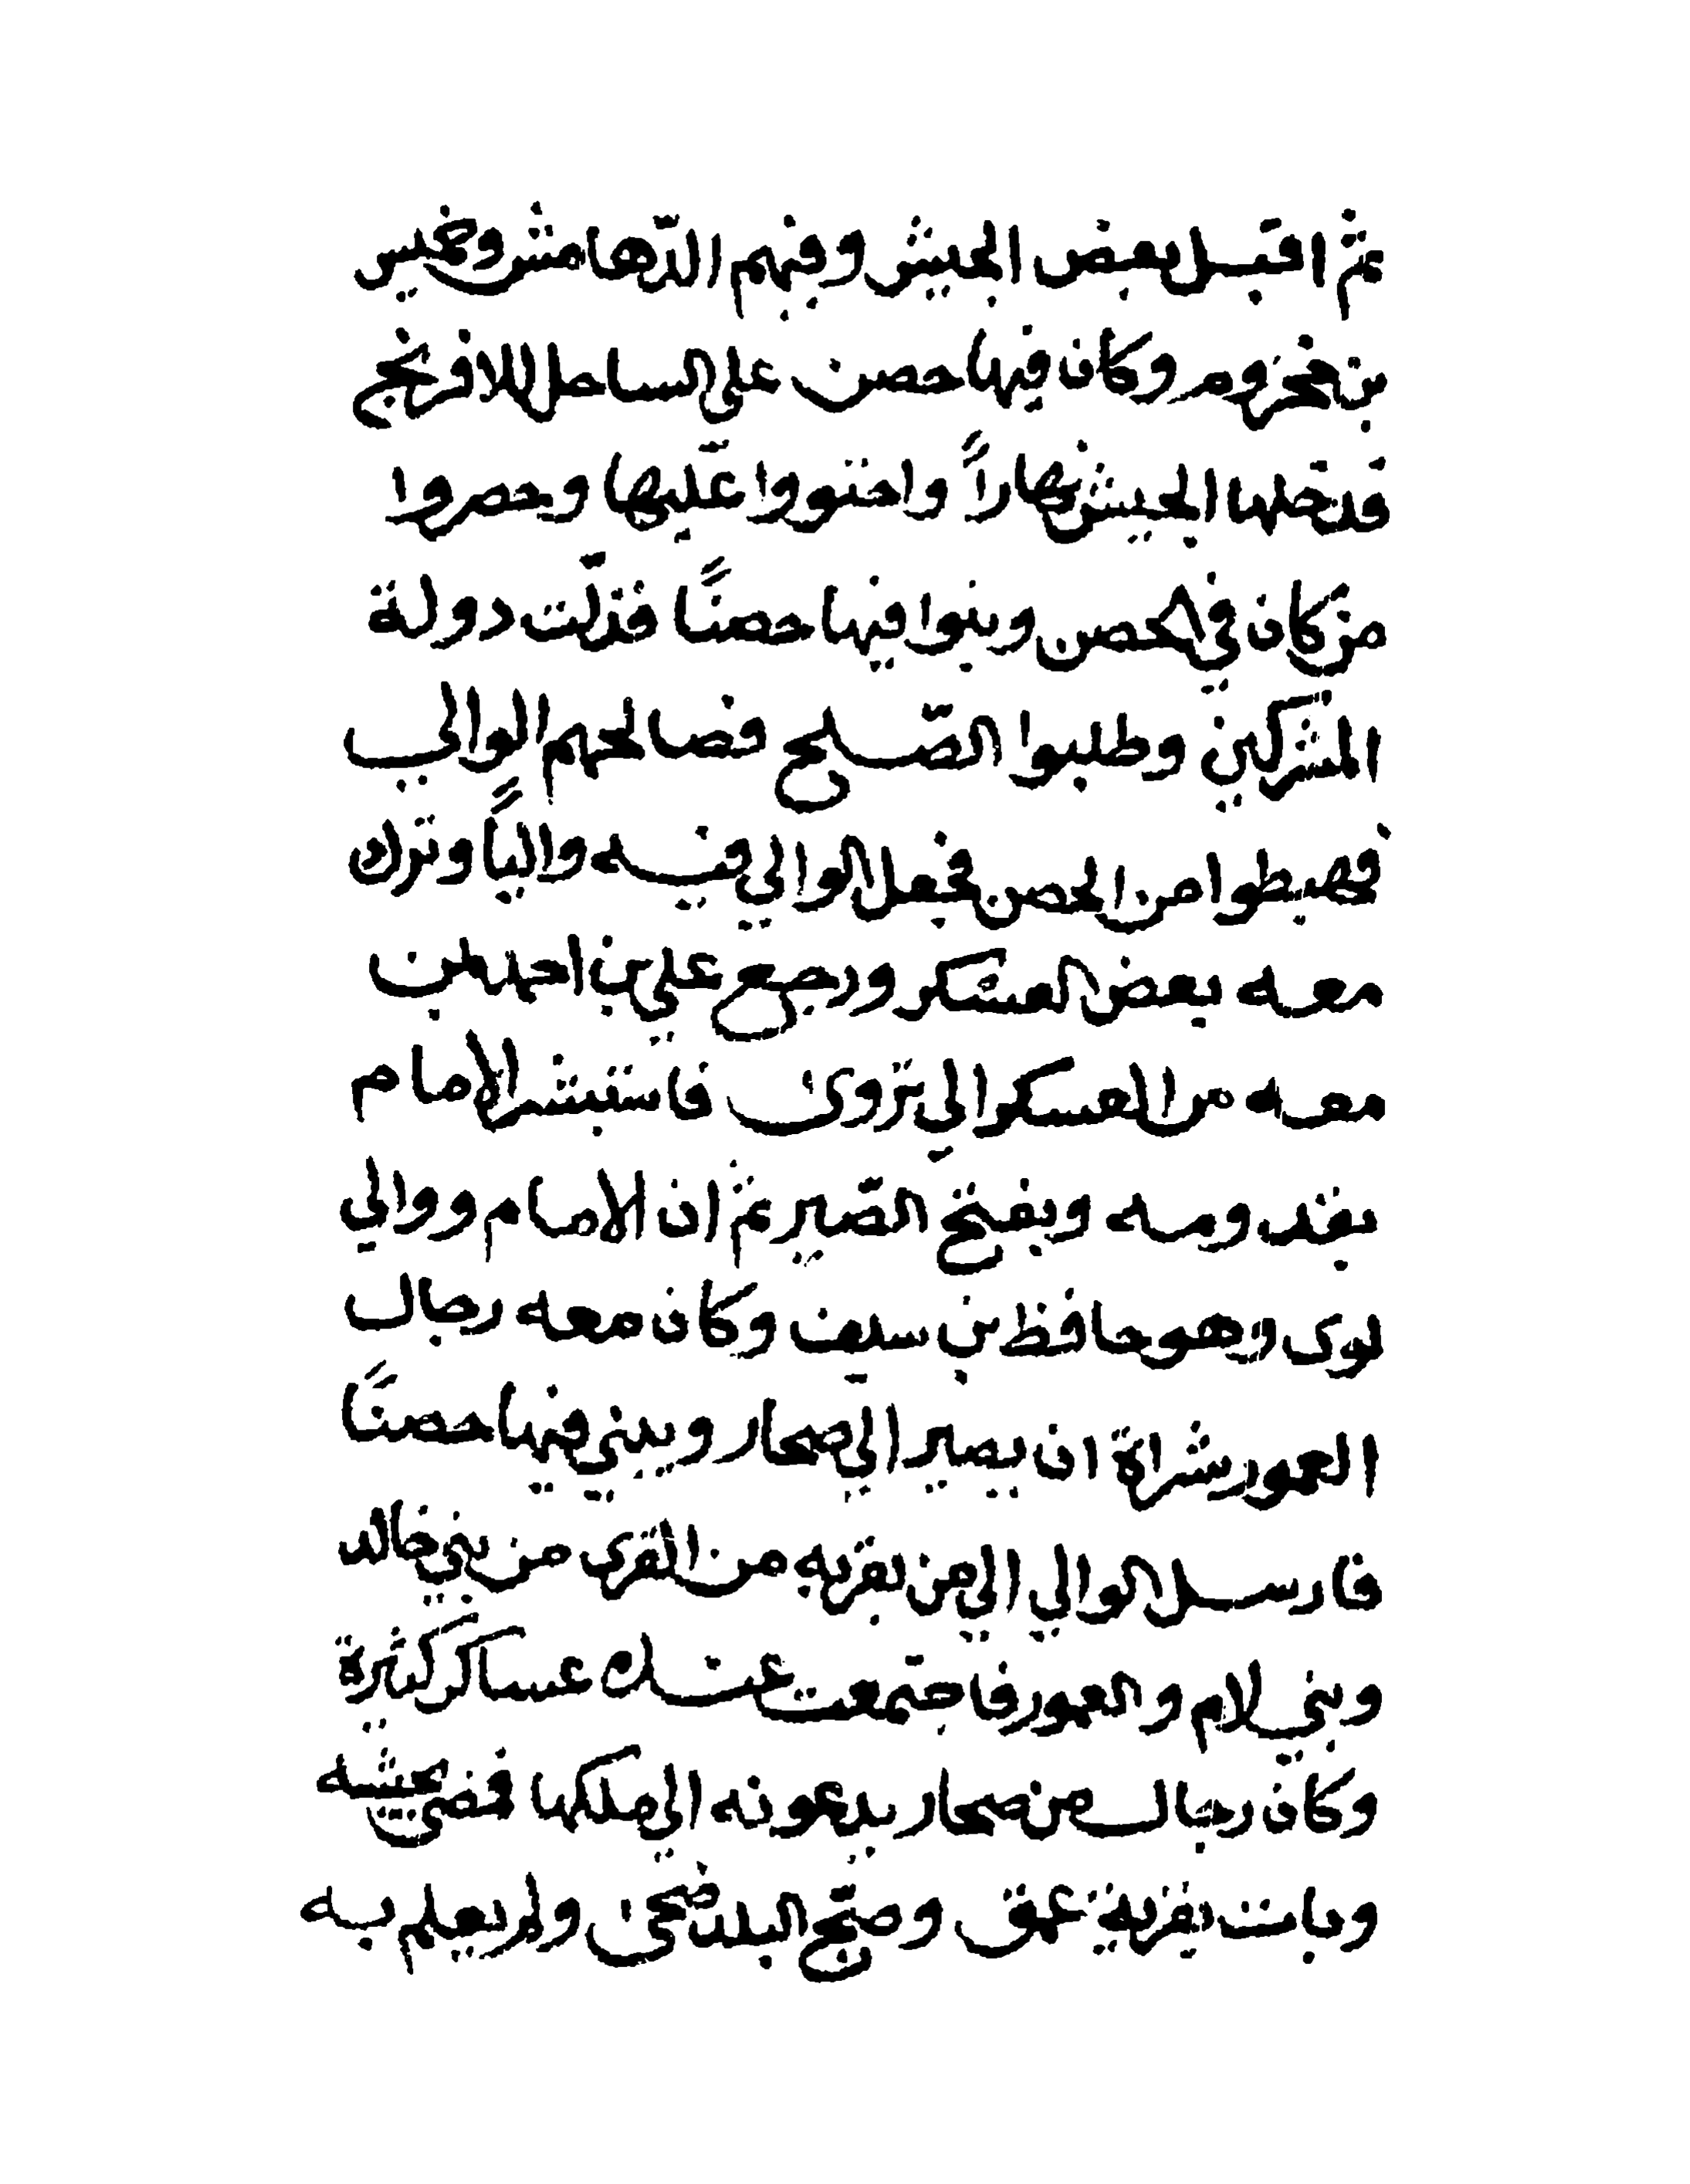 ثم اقبل بعض الجيش وفيهم الدّهامش وخميس
بن مخزوم وكان فيها حصن على الساحل للافرنج
فدخلها الجيش نهاراً واحتووا عليها وحصروا
من كان في الحصن وبنوا فيها حصنًا فذلّت دولة
المشركين وطلبوا الصّلح فصالحهم الوالي
فهبطوا من الحصن فجعل الوالي فيه والياً وترك
معه بعض العسكر ورجع علي بن احمد بمن
معه من العسكر الى نزوى فاستبشر الامام
بقدومه وبفتح الصّير ثم ان الامام ووالي
لوى وهو حافظ بن سيف وكان معه رجال
العمور شراة ان يصير الى صحار ويبني فيها حصنًا
فارسل الوالي الى من بقربه من القرى من بني خالد
وبني لام والعمور فاجتمعت عنده عساكر كثيرة
وكان رجال من صحار يدعونه الى ملكها فمضى بجيشه
وبات بقرية عمق وصبّح البلد ضحى ولم يعلم به